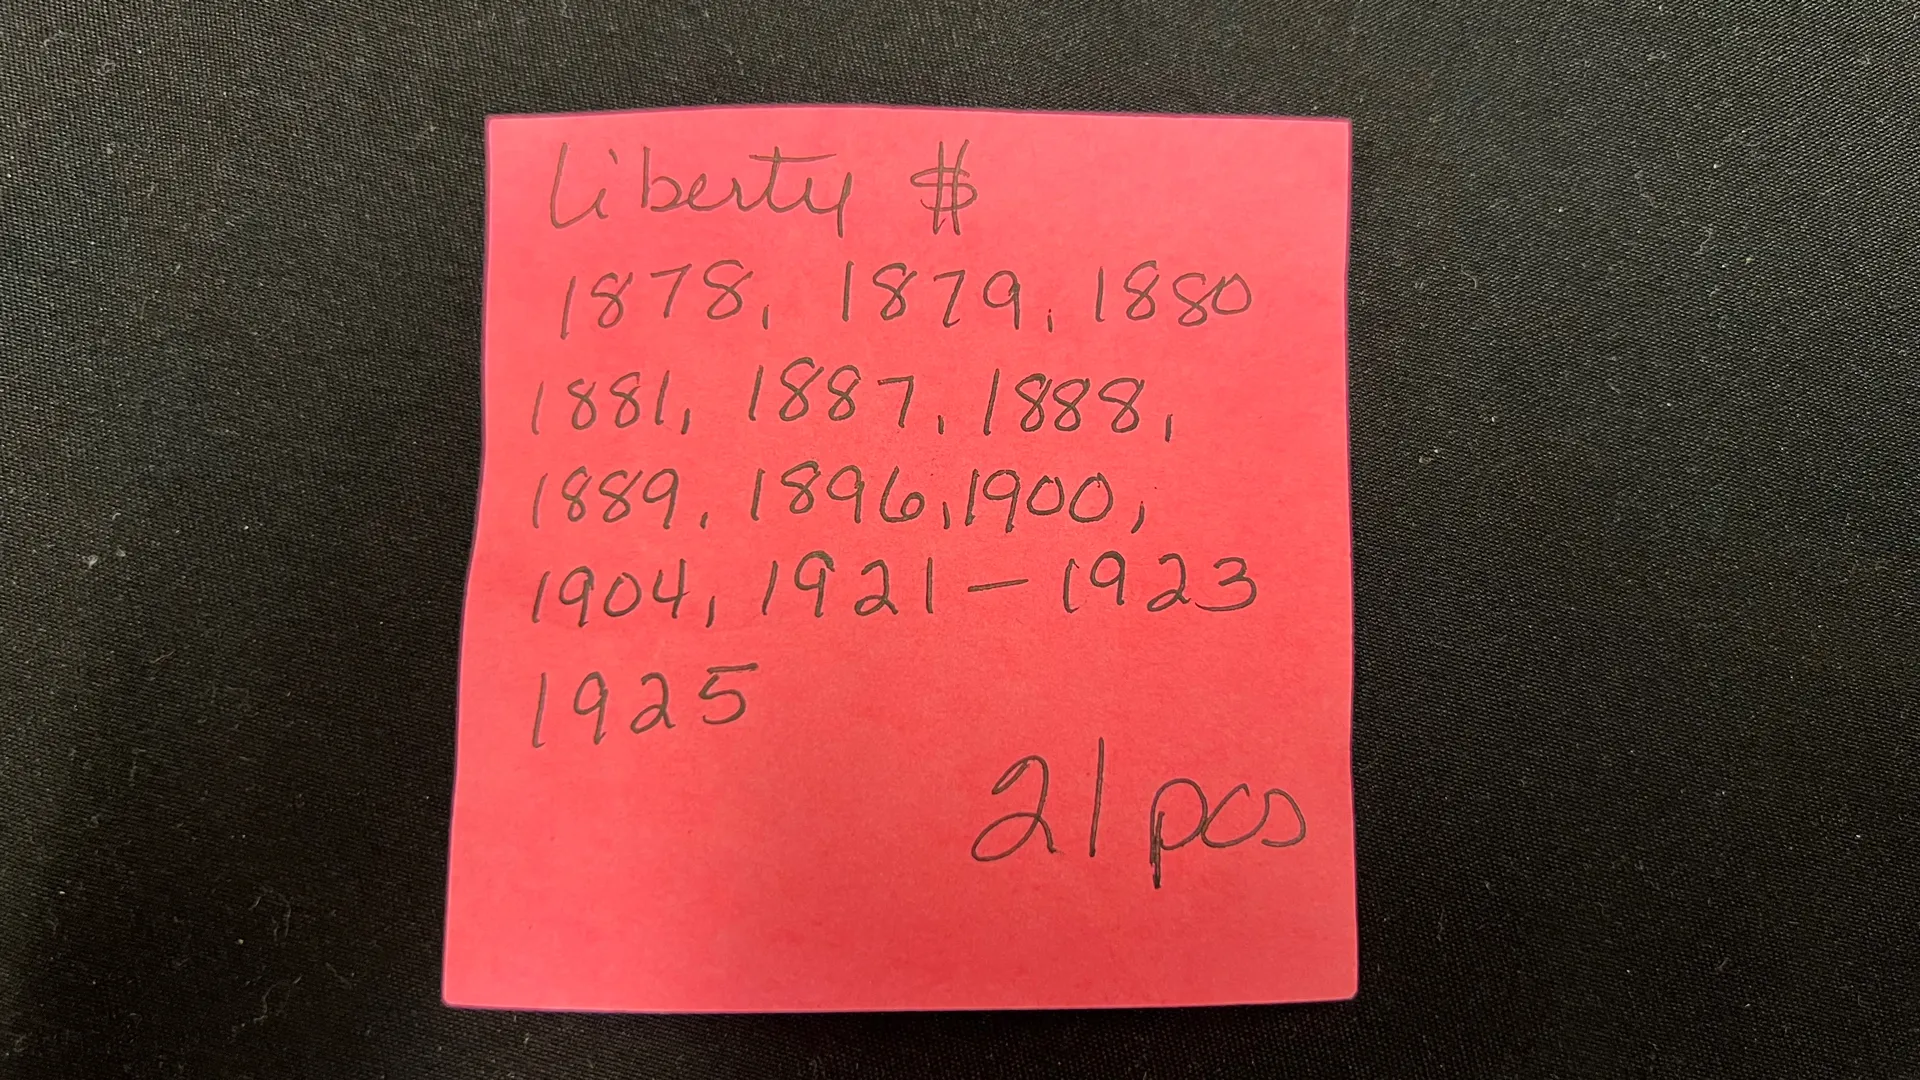 Liberty $
1878, 1879, 1880
1881, 1887, 1888,
1889, 1896, 1900,
1904, 1921 - 1923
1925
21 pcs